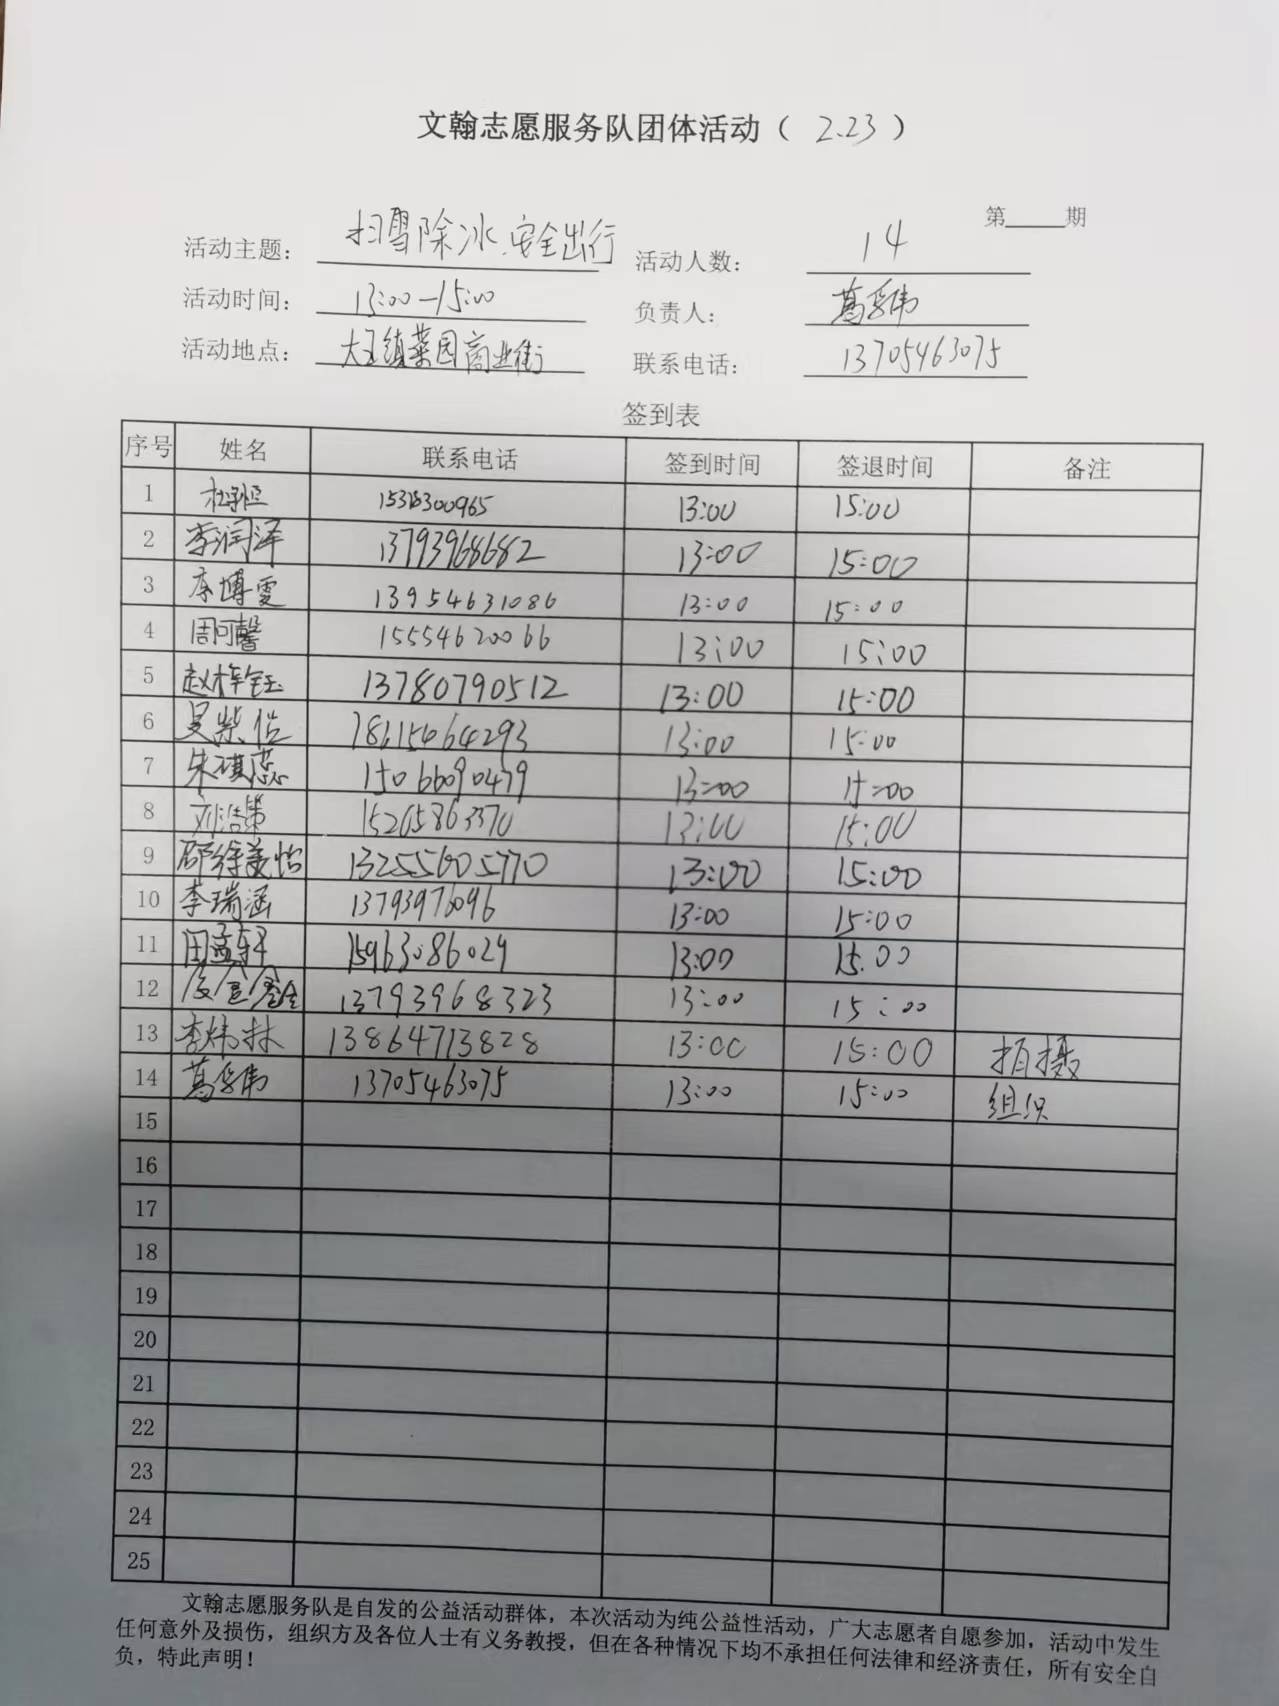 文翰志愿服务队团体活动（ 2.23 ）
第____期
活动主题： 扫雪除冰、安全出行 活动人数： 14
活动时间： 13:00—15:00 负责人： 葛孚伟
活动地点： 大王镇菜园商业街 联系电话： 13705463075
签到表
序号 姓名 联系电话 签到时间 签退时间 备注
1 13:00 15:00
2 李润泽 13793968682 13:00 15:00
3 13954631086 13:00 15:00
4 周可馨 15554620066 13:00 15:00
5 赵梓钰 13780790512 13:00 15:00
6 18615464293 13:00 15:00
7 朱琪蕊 15066090479 13:00 15:00
8 15265863370 13:00 15:00
9 邵徐美怡 13255605770 13:00 15:00
10 李瑞涵 13793976096 13:00 15:00
11 田孟轩 15963086029 13:00 15:00
12 13793968323 13:00 15:00
13 李炜林 13864713828 13:00 15:00 拍摄
14 葛孚伟 13705463075 13:00 15:00 组织
15
16
17
18
19
20
21
22
23
24
25
文翰志愿服务队是自发的公益活动群体，本次活动为纯公益性活动，广大志愿者自愿参加，活动中发生
任何意外及损伤，组织方及各位人士有义务教授，但在各种情况下均不承担任何法律和经济责任，所有安全自
负，特此声明！